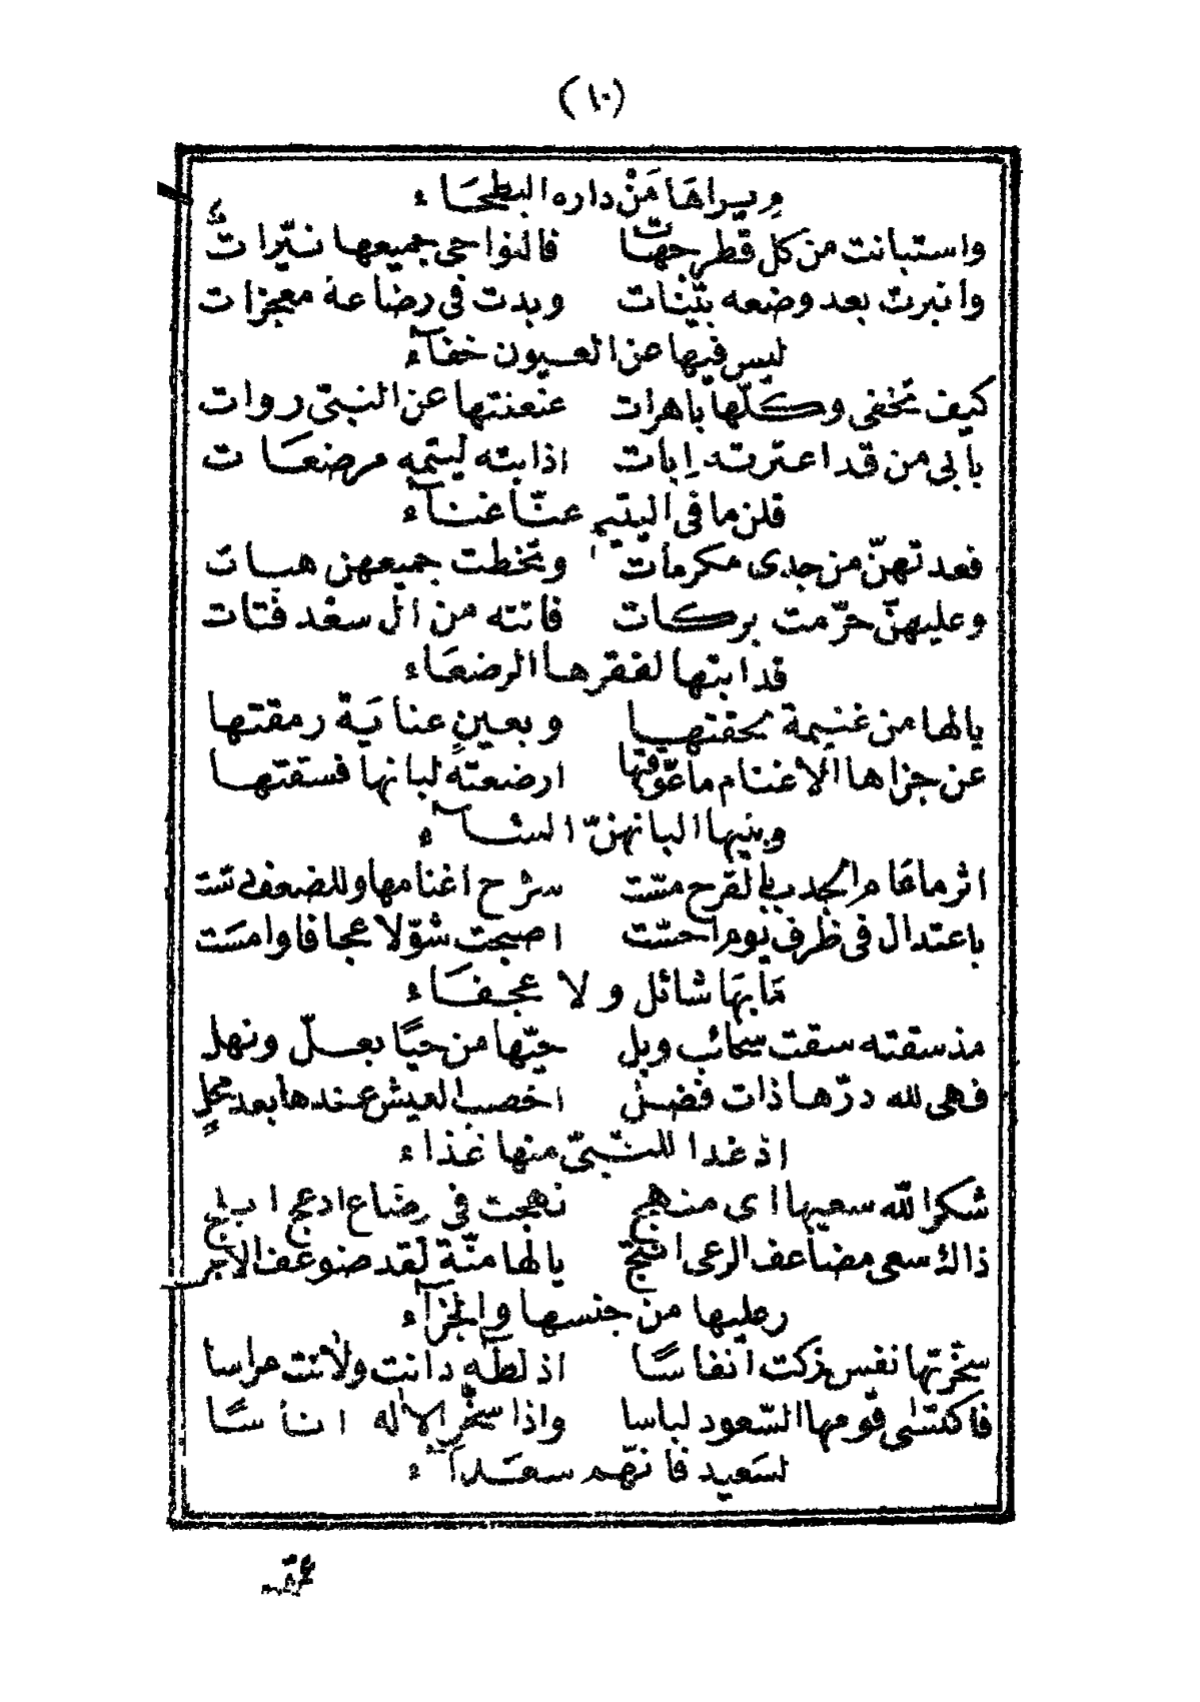 (١٠)
يراها مَنْ داره البطحَاء
واستبانت من كل قطر جهات فالنواحى جميعها نيّرات
وانبرت بعد وضعه بيّنات وبدت فى رضاعة معجزات
ليس فيها عن العيون خفآء
كيف تخفى وكلّها باهرات عنعنتها عن النبىّ روات
بأبى من قد اعترته اٖبات اذا بته ليتمه مرضعات
قلن ما فى اليتيم عنّا غنآء
فعدتهنّ من جدى مكرمات وتخطت جميعهن هبات
وعليهنّ حرّمت بركات فاتته من اٰل سعْد فتات
قد ابتها لفقرها الرضعَاء
يالها من غنيمة محقتها وبعينٍ عناية رمقتها
عن جزاها الاغنام ما عوّقتها ارضعته لبانها فسقتها
وبنيها البانهنّ الشآء
اثر ما عَام الجدب بالقرح مسّت سرْح اغنامها وللضعف
باعتدال فى ظرف يوم احسّت اصبحت شوّلا عجافا وامسَت
مَا بهَا شائل ولا عجفَاء
مذ سقته سقت سحائب وبل حيّها من حيًا بعلّ ونهل
فهى لله درّها ذات فضل اخصب العيش عندها بعد محلٍ
اذ غدا للنّبىّ منها غذاء
شكر الله سعيها اى منهج نهجت فى رضاع ادعج ابلج
ذاك سعى مضاعف الرعى انتج يالها منّة لقد ضوعف الاجر
عليها من جنسها والجزآء
سخّرتها نفس زكت انفاسًا اذ لطٰه دانت ولانت مراسا
فاكتسٰى قومها السّعود لباسا واذا سخّر الالٰه اناسًا
لسَعيد فانهّم سعَدآء